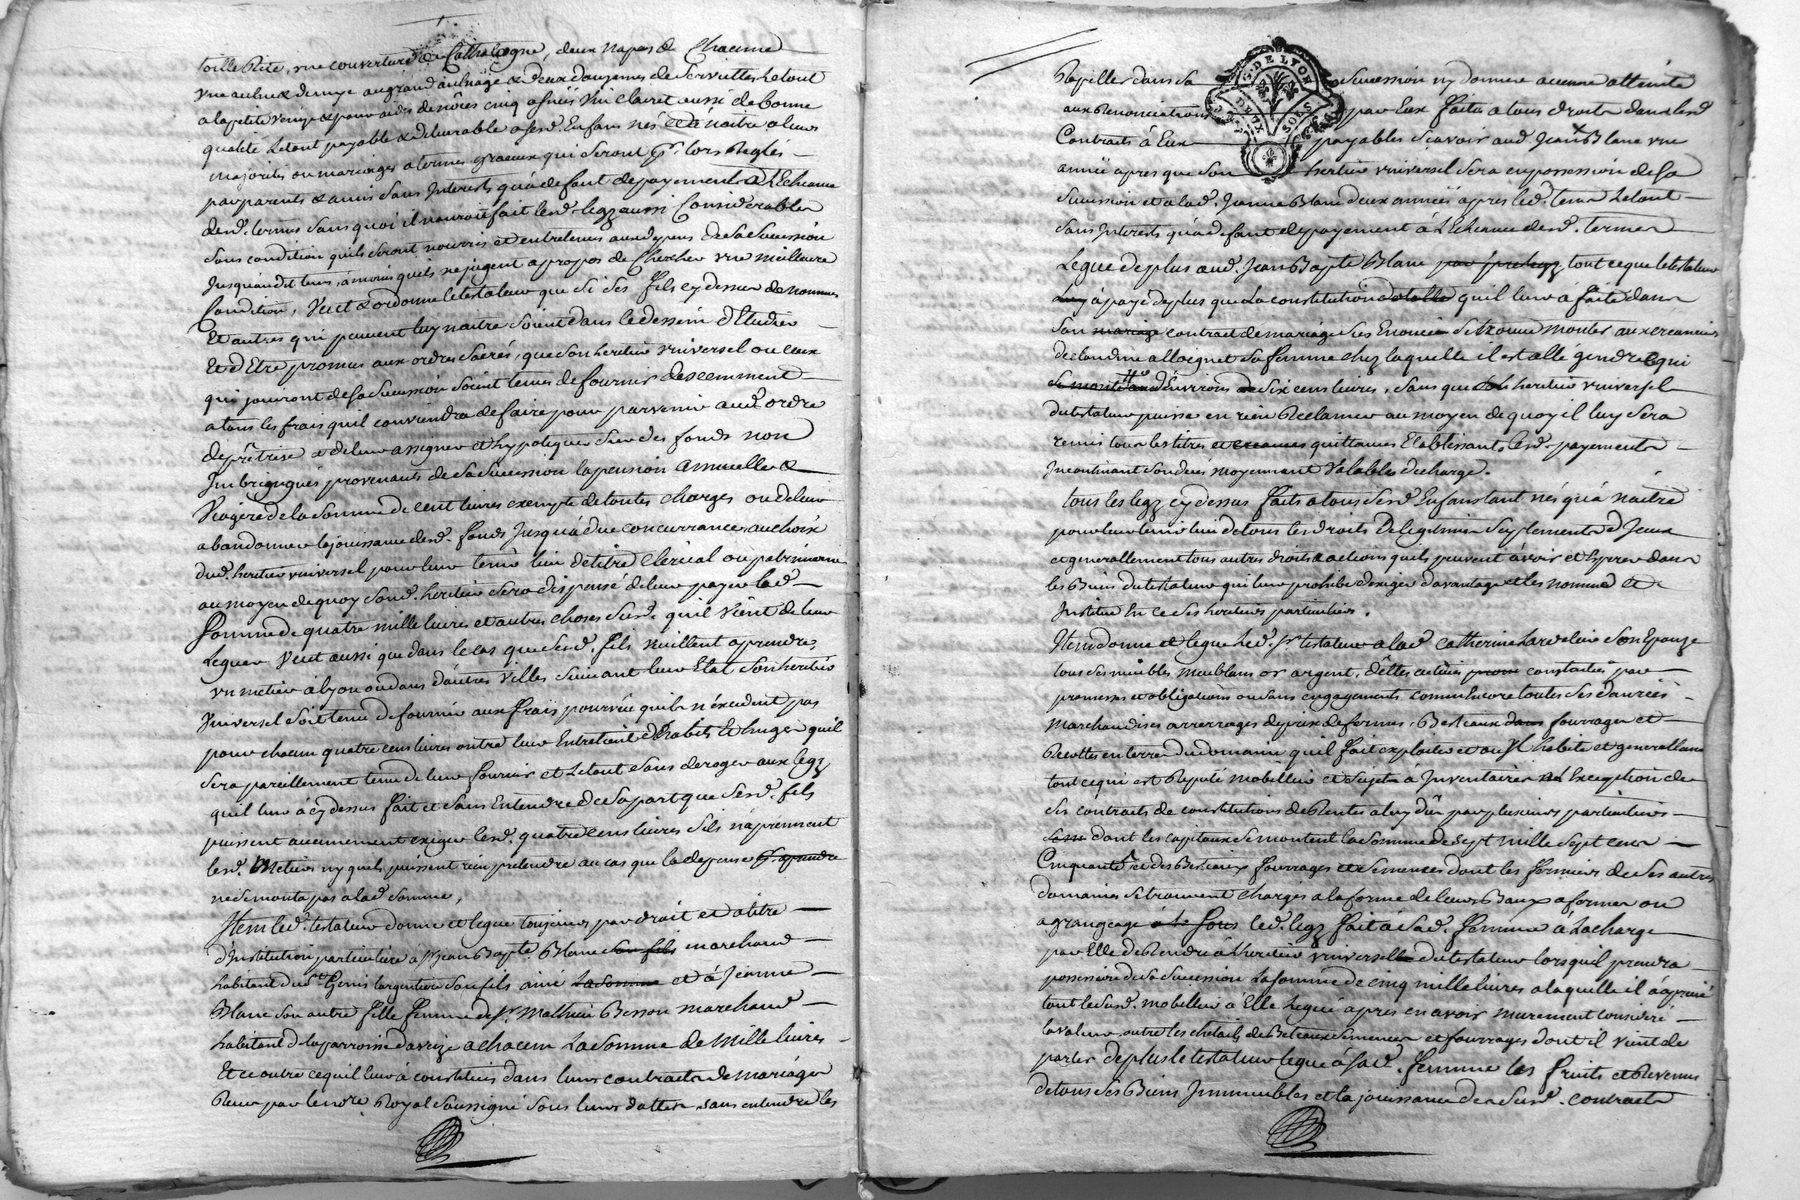 toille Rite, une couverture de Cathalogne, deux napes de Chacune
une aulne & demye au grand aulnage & deux douzenes de serviettes Le tout
a la petite venize & pour aides de nôces cinq asnées vin clairet aussi de bonne
qualité Le tout payable & delivrable a sesd. Enfans nés et à naitre a leurs
majorités ou mariages a termes gracieux qui seront pr. lors Reglés
par parents & amis sans Interests qu'a deffaut de payement a L'Echeance
desd. termes sans quoi il nauroit fait lesd. legz aussi Considerables
sous condition quils seront nourris et entretenus aux depens de sa succession
Jusquaudit tems, a moins quils ne jugent apropos de Chercher une meilleure
Condition, Veut & ordonne le testateur que si ses fils cy dessus denommes
Et autres qui peuvent luy naitre soient dans le dessein d'Etudier
Et d'Etre promus aux ordres sacrés, que son heritier universel ou ceux
qui jouiront de sa succession soient tenus de fournir descemment
a tous les frais quil conviendra de faire pour parvenir aud. ordre
de prêtrise & de leur assigner et hypotequer sur des fonds non
Imbringués provenants de sa succession la pension annuelle &
Viagere de la somme de cent livres exempte de toutes charges ou de leur
abandonner la jouissance desd. fonds Jusqu'a due concurrance, au choix
dud. heritier universel pour leur tenir lieu de titre Clerical ou patrimoine
au moyen de quoy sond. heritier sera dispensé de leur payer lad.
somme de quatre mille livres et autres choses susd. quil vient de leur
Leguer Veut aussi que dans le cas que sesd. fils veuillent aprendre
un metier à lyon ou dans d'autres Villes suivant leur Etat son heritier
Universel soit tenu de fournir aux fraix pourvû quils n'excedent pas
pour chacun quatre cens livres outre leur Entretient d'habits et linges quil
sera pareillement tenu de leur fournir et Le tout sans deroger aux legz
quil leur à cy dessus fait et sans Entendre de sa part que sesd. fils
puissent aucunement exiger lesd. quatre cens livres sils n'aprennent
lesd. Metiers ny quils puissent rien pretendre au cas que la depense pr. aprendre
ne se monta pas a lad. somme,
Item led. testateur donne et legue toujours par droit et titre
d'Institution particuliere a sr. Jean Bapte. Blanc son fils marchand
habitant de St. Genis largentiere son fils ainé La somme et à Jeanne
Blanc son autre fille femme de sr. Mathieu Besson marchand
habitant de la parroisse davaize a chacun La somme de Mille livres
Et ce outre ce quil leur à constitués dans leurs contracts de mariages
Recus par le nore. Royal soussigné sous leurs dattes sans entendre les
Rapeller dans sa succession ny donner aucune atteinte
aux Renonciations par Eux faites a tous droits dans lesd.
Contracts à Eux payables sçavoir aud. Jean Blanc une
année apres que son heritier universel sera en possession de sa
succession et a lad. Jeanne Blanc deux années apres led. terme Le tout
sans Interests qu'a deffaut de payement à L'Echeance desd. termes
Legue de plus aud. Jean Bapte Blanc par preleg tout ce que le testateur
Luy à payé de plus que la constitution quil luy à faite dans
son mariage contract de mariage
de claudine allognet sa femme chez laquelle il est allé gendre qui
se monte d'Environ six cens livres, sans que heritier universel
du testateur puisse en rien Reclamer au moyen de quoy il luy sera
remis tous les titres et quittances Etablissants lesd. payements
Incontinant son decés moyennant valable decharge.
tous les legz cy dessus faits a tous sesd. Enfans tant nés qu'à naitre
pour leur tenir lieu de tous les droits De legitime suplement d'Iceux
et generallement tous autres droits & actions quils peuvent avoir et Esperer dans
les Biens du testateur qui leur prohibe d'exiger d'avantage & les nomme &
Institue En ce ses heritiers particuliers.
Item donne et legue Led. sr. testateur a lad. Catherine Lardeliere son Epouse
tous ses meubles meublans or argent, dêttes actives constatées par
promesses et obligations ou sans engagements comme Encore toutes ses danrées
Marchandises arrerrages de prix de fermes, Bestiaux fourrages et
Recoltes en terre du domaine quil fait exploiter et ou Jl habite et generallement
tout ce qui est Reputé mobillier et sujet à Inventaire à l'Exception de
ses contraits de constitutions de Rentes a luy dûs par plusieurs particuliers
dont les capitaux se montent La somme de sept mille sept cens
Cinquante et des Bestiaux fourrages et semences dont les fermiers de ses autres
domaines se trouvent chargés a la forme de leurs Baux a fermes ou
a grangeage sous led. legz fait à sad. femme à la charge
par Elle de Rendre à l'heritier universel du testateur lorsquil prendra
possession de sa succession La somme de cinq mille livres a laquelle il a aprecié
tout le susd. mobillier à Elle legué apres en avoir murement consideré
la valeur, outre les cheptails de Bestiaux semences et fourrages dont il vient de
parler de plus le testateur legue à sad. femme les fruits et Revenus
de tous ses Biens Immeubles et la jouissance de sesd. contracts
G. DE LYON
DEUX SOLS